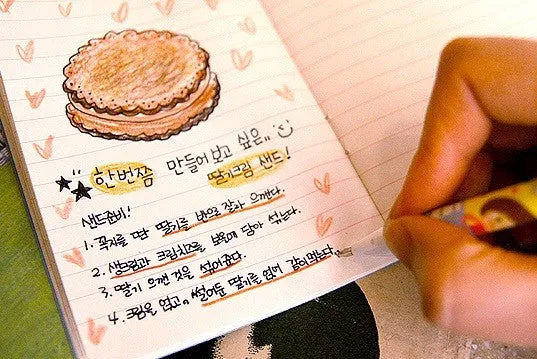 한번쯤 만들어 보고 싶은,, 
딸기크림 샌드!
샌드준비!
1. 꼭지를 딴 딸기를 반으로 갈라 으깬다.
2. 생크림과 크림치즈를 볼에 담아 섞는다.
3. 딸기 으깬 것을 섞어준다.
4. 크림을 얹고,, 썰어둔 딸기를 얹어 같이먹는다.